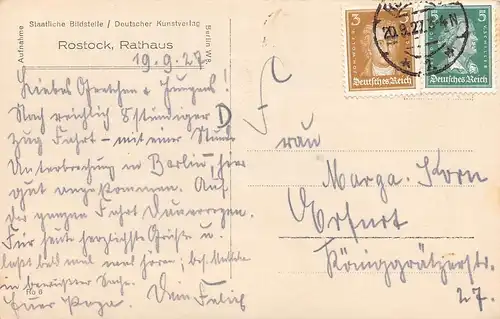 Staatliche Bildstelle / Deutscher Kunstverlag
Aufnahme
Berlin W 8
Rostock, Rathaus
19. 9. 27
Liebes Gretchen u. Jungens!
Nach reichlich 8 stündiger D
Zug Fahrt – mit einer Stunde
Unterbrechung in Berlin –, hier
gut angekommen. Auf
der ganzen Fahrt Dauerregen.
Für heute herzlichste Grüße u.
laßt bald mal was hören; bes.
in bewußter Sache.
Euer Papa. Dein Felix
Frau
Marga Korn
Erfurt
Königgrätzerstr.
27.
3
5
Deutsches Reich
Deutsches Reich
20.9.27. 3-4 N